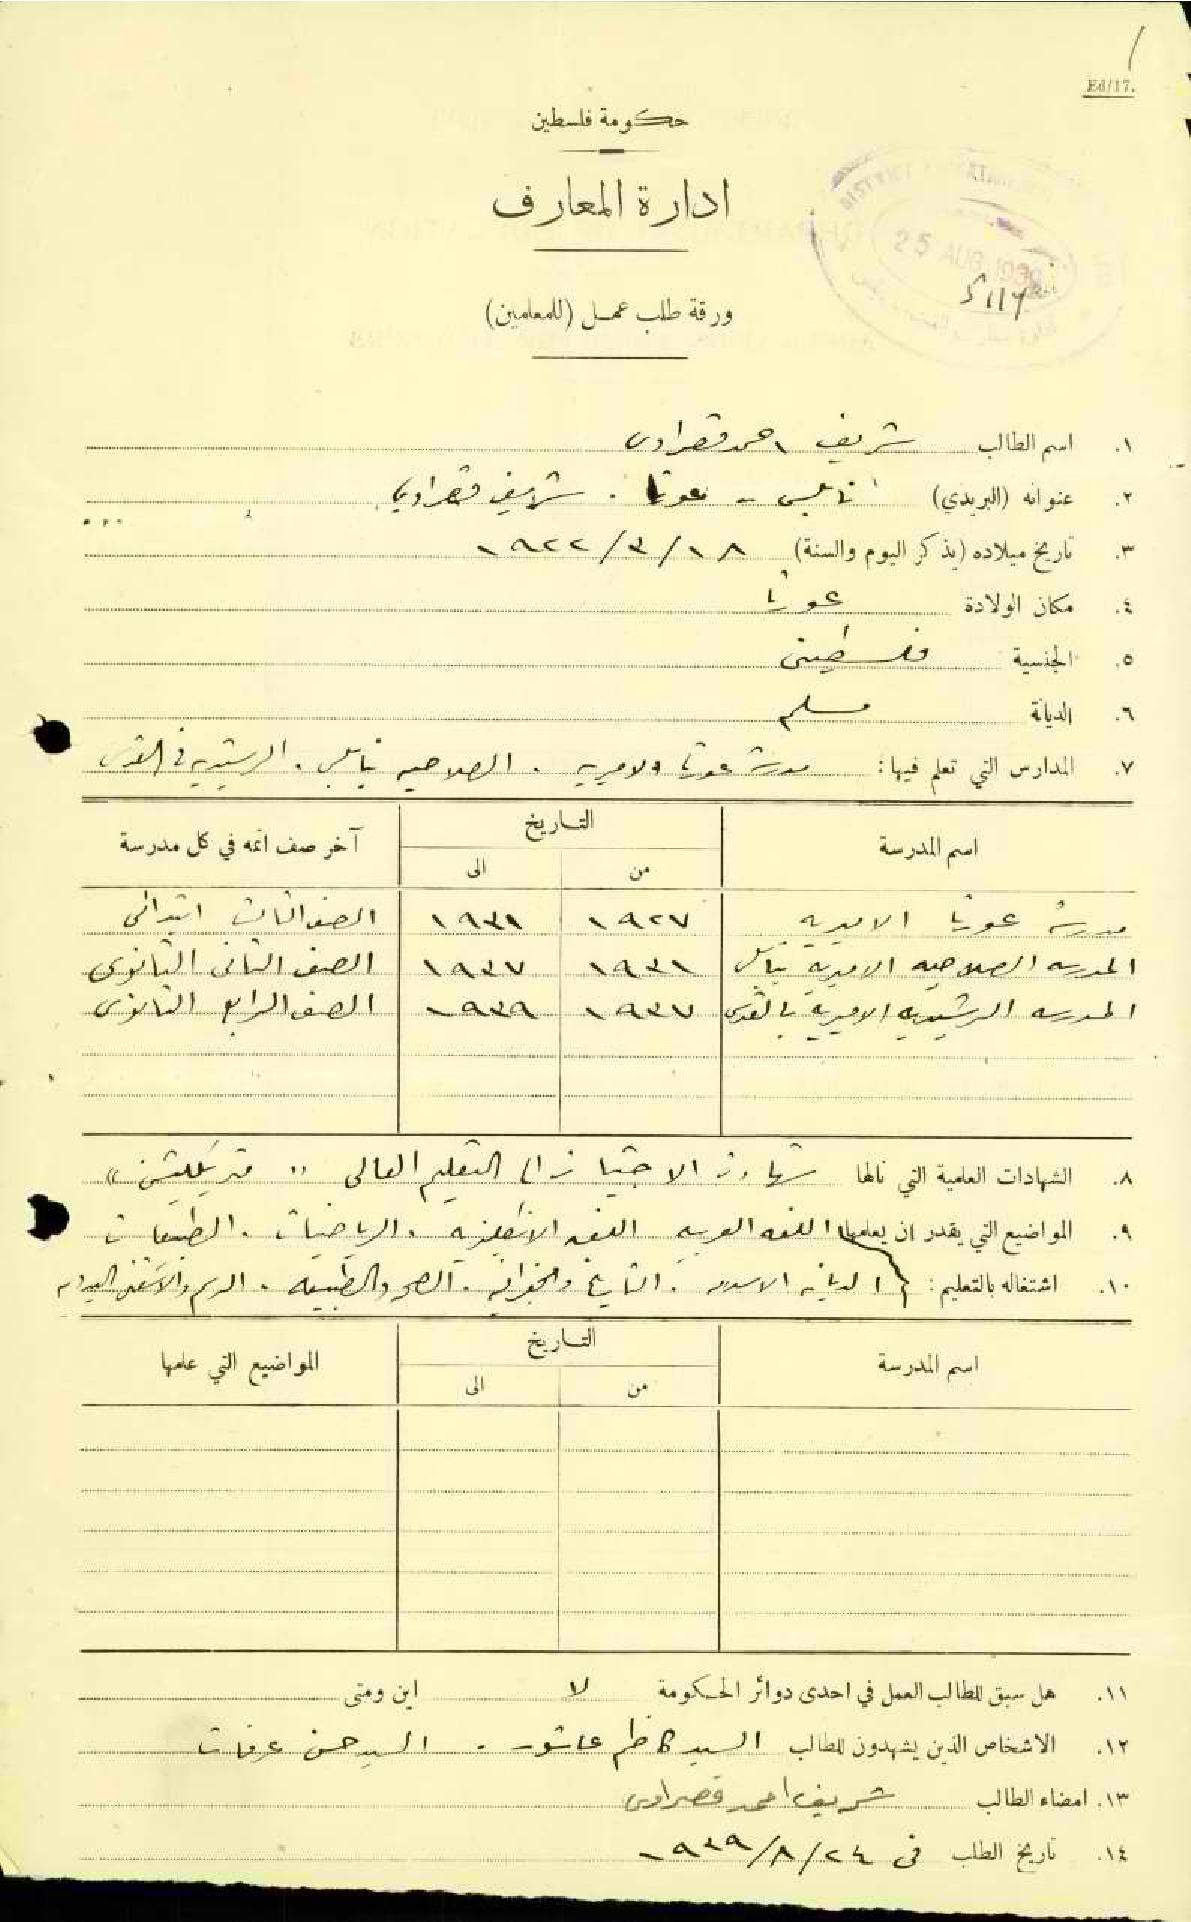 Ed/17.
حكومة فلسطين
ادارة المعارف
25 AUG 1939
ورقة طلب عمل (للمعلمين)
١. اسم الطالب شريف احمد قصراوي
٢. عنوانه (البريدي) نابلس - عورتا . شريف قصراوي
٣. تاريخ ميلاده (يذكر اليوم والسنة) ١٨/٣/١٩٢٢
٤. مكان الولادة عورتا
٥. الجنسية فلسطيني
٦. الديانة مسلم
٧. المدارس التي تعلم فيها: مدرسة عورتا الاميرية . الصلاحيه بنابلس . الرشيديه في القدس
اسم المدرسة التاريخ آخر صف اتمه في كل مدرسة
من الى
مدرسة عورتا الاميريه ١٩٢٧ ١٩٣١ الصف الثالث ابتدائي
المدرسه الصلاحيه الاميريه بنابلس ١٩٣١ ١٩٣٧ الصف الثاني الثانوي
المدرسه الرشيديه الاميرية بالقدس ١٩٣٧ ١٩٣٩ الصف الرابع الثانوي
٨. الشهادات العلمية التي نالها شهادة الاجتياز الى التعليم العالي "متريكليشن"
٩. المواضيع التي يقدر ان يعلمها اللغه العربيه . اللغه الانكليزيه . الرياضيات . الطبيعيات
١٠. اشتغاله بالتعليم: الديانه الاسلاميه . التاريخ والجغرافيه . الصحه والطبيعه . الرسم والاشغال اليدويه
اسم المدرسة التاريخ المواضيع التي علمها
من الى
١١. هل سبق للطالب العمل في احدى دوائر الحكومة لا اين ومتى
١٢. الاشخاص الذين يشهدون للطالب السيد كاظم عاشور . السيد حسن عرفات
١٣. امضاء الطالب شريف احمد قصراوي
١٤. تاريخ الطلب في ٢٤/٨/١٩٣٩